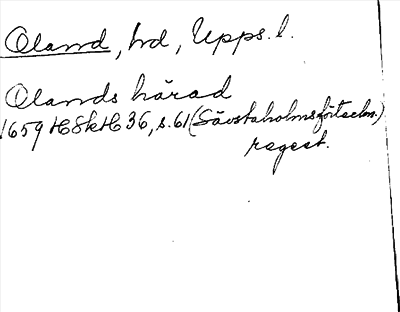 Oland, hd, Upps. l.
Olands härad
1659 HSkH 36, s. 61 (Sävstaholmsförteckn.)
regest.